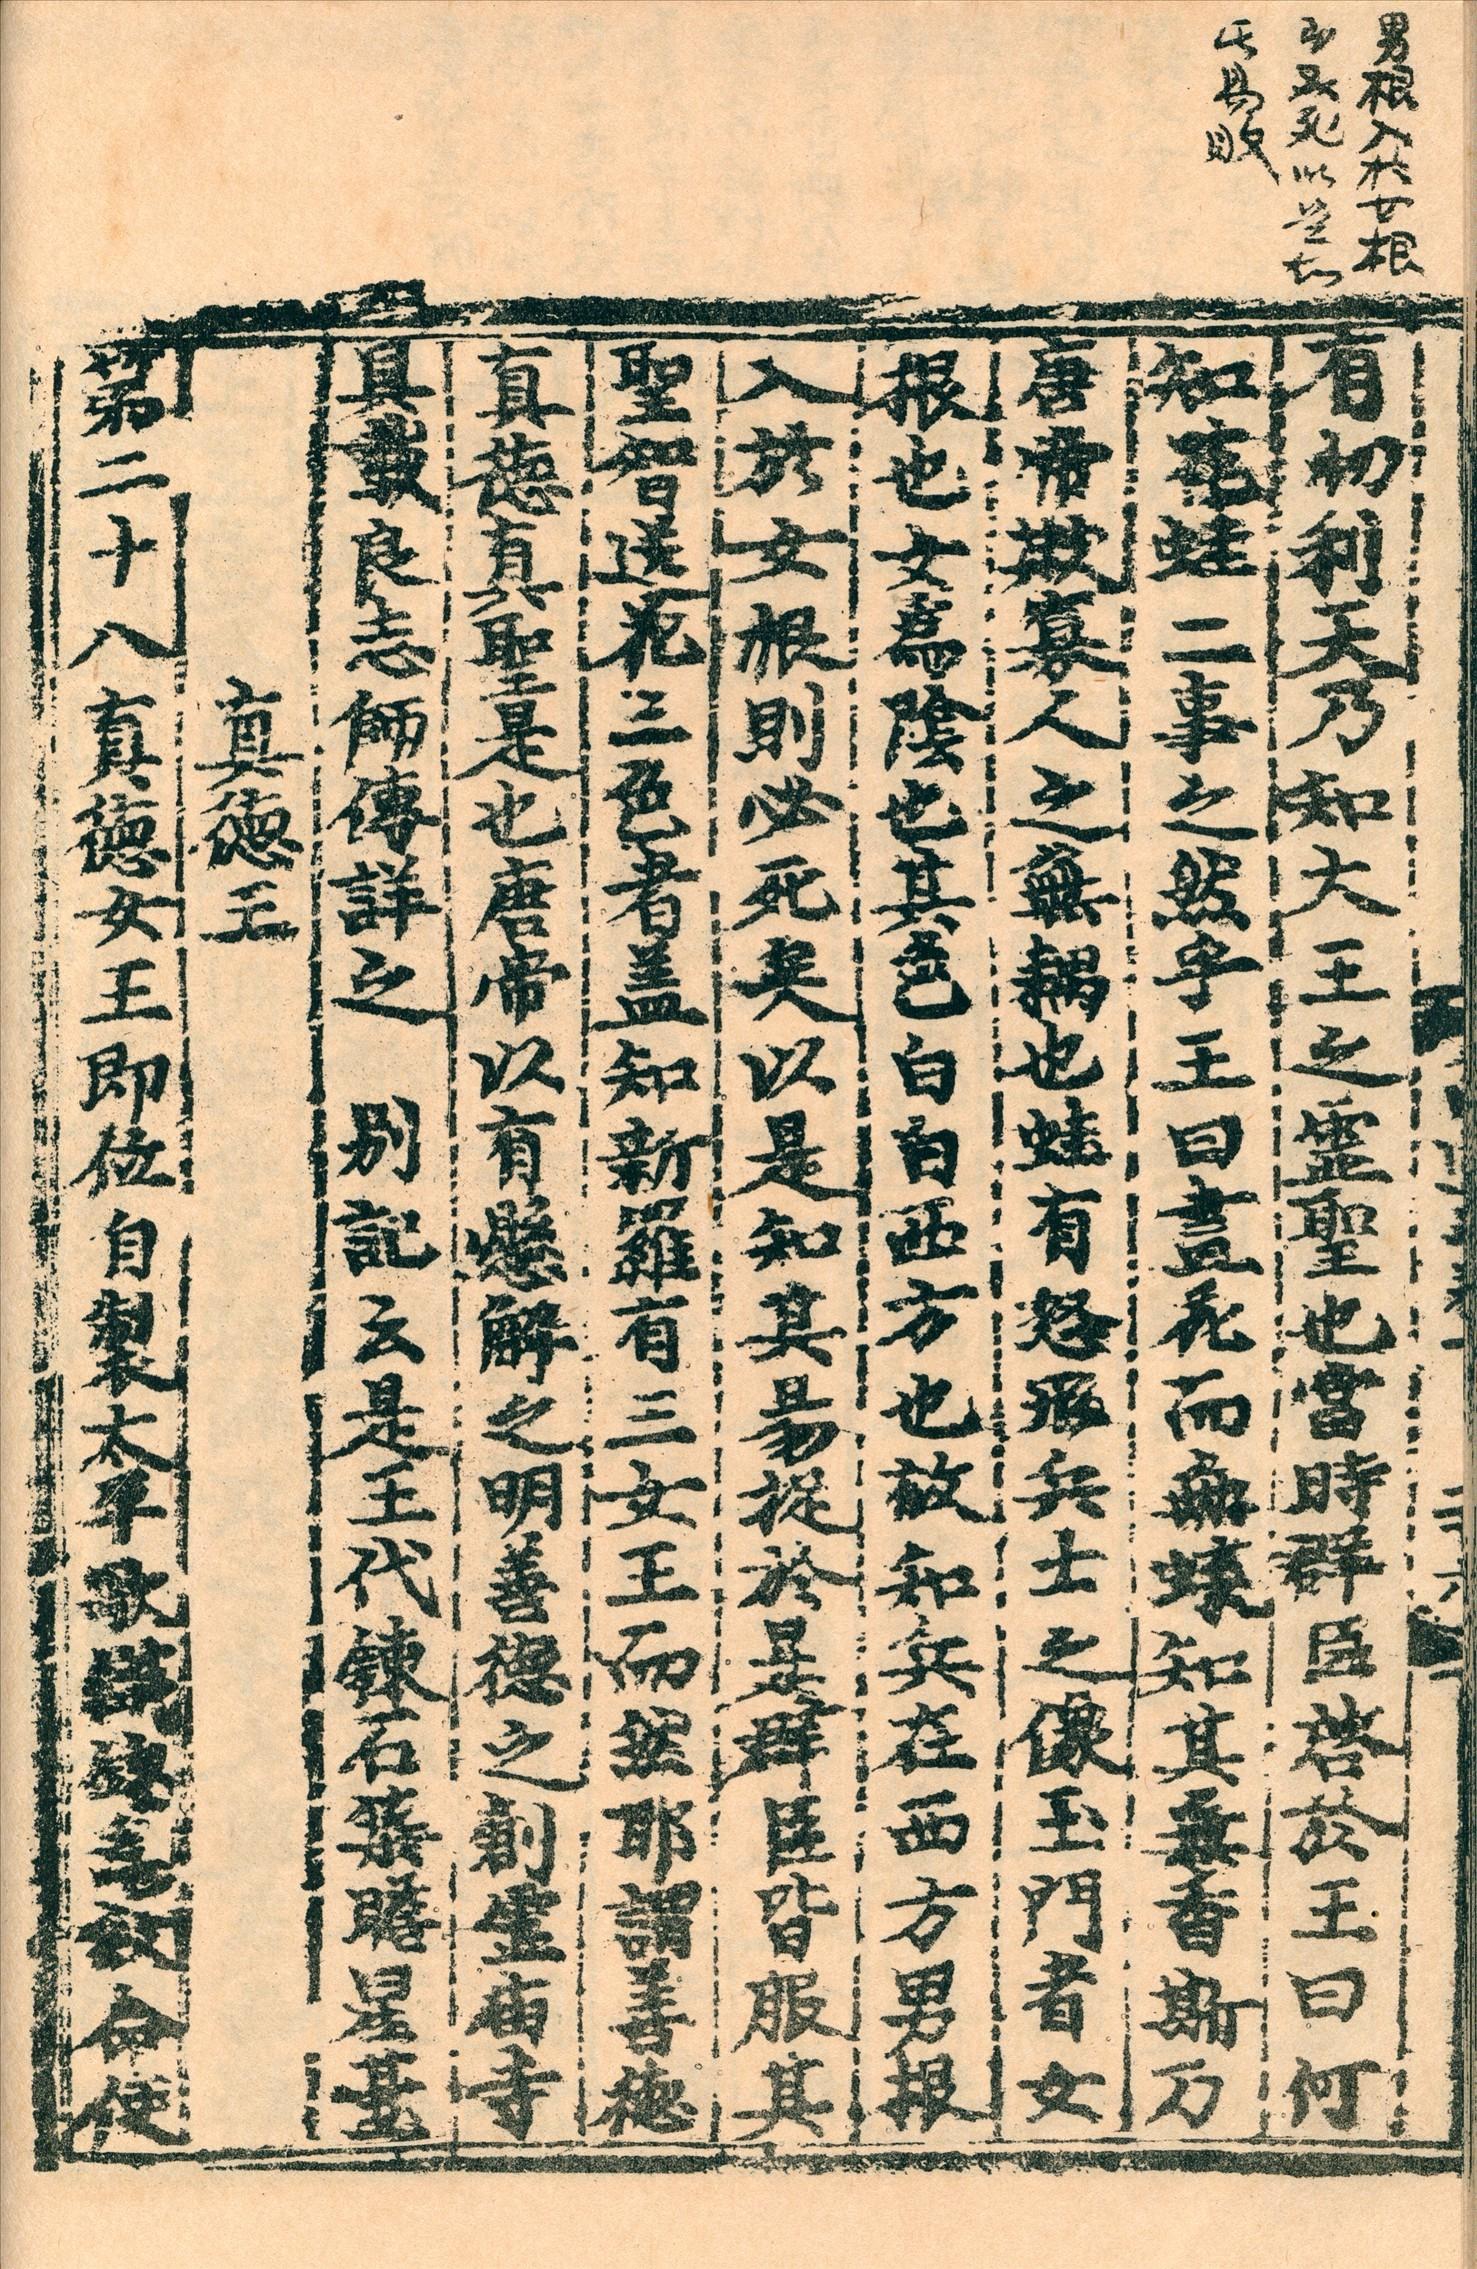 男根入於女根
即必死以是知
其易敗
有忉利天乃知大王之靈聖也當時群臣啓於王曰何
知花蛙二事之然乎王曰畫花而無蝶知其無香斯乃
唐帝欺寡人之無耦也蛙有怒形兵士之像玉門者女
根也女爲陰也其色白白西方也故知兵在西方男根
入於女根則必死矣以是知其易捉於是群臣皆服其
聖智送花三色者盖知新羅有三女王而然耶謂善德
真德真聖是也唐帝以有懸解之明善德之創靈庙寺
具載良志師傳詳之 別記云是王代鍊石築瞻星臺
真德王
第二十八真德女王即位自製太平歌織錦爲紋命使